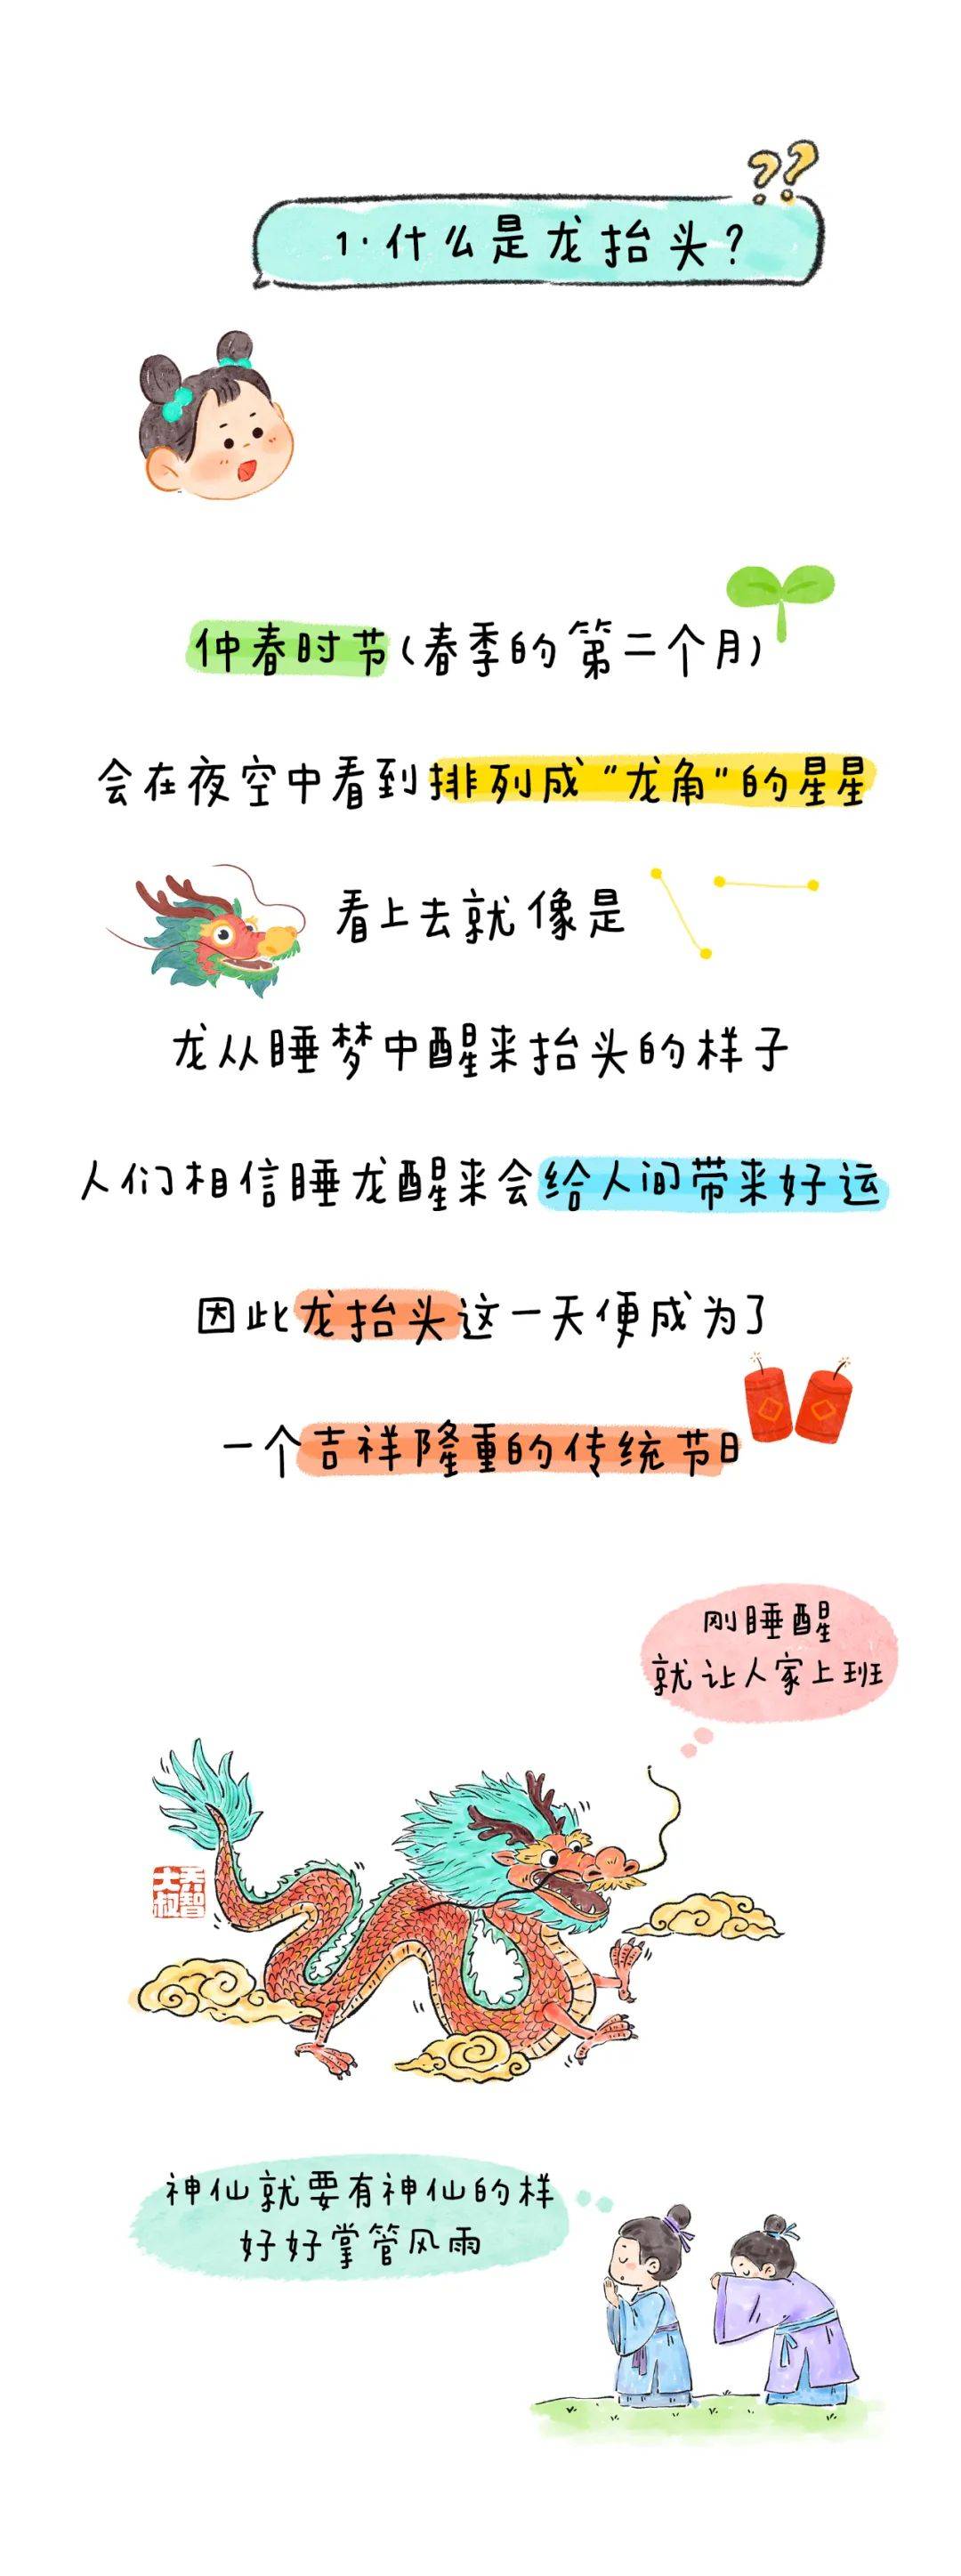 ??
1.什么是龙抬头?
仲春时节(春季的第二个月)
会在夜空中看到排列成"龙角"的星星
看上去就像是
龙从睡梦中醒来抬头的样子
人们相信睡龙醒来会给人间带来好运
因此龙抬头这一天便成为了
一个吉祥隆重的传统节日
刚睡醒
就让人家上班
乔智
大叔
神仙就要有神仙的样
好好掌管风雨